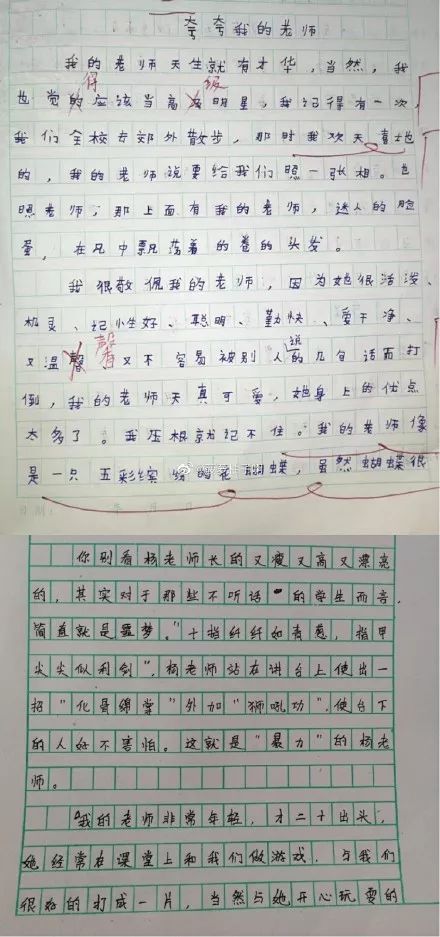 夸夸我的老师
我的老师天生就有才华，当然，我
也觉得应该当高级明星，我记得有一次，
我们全校去郊外散步，那时我欢天喜地
的，我的老师说要给我们照一张相。也
照老师，那上面有我的老师，迷人的脸
蛋，在风中飘荡着的卷的头发。
我很敬佩我的老师，因为她很活泼、
机灵、记性好、聪明、勤快、爱干净、
又温馨又不容易被别人说的几句话而打
倒，我的老师天真可爱，她身上的优点
太多了。我压根就记不住。我的老师像
是一只五彩缤纷的花蝴蝶，虽然蝴蝶很
日期：
你别看杨老师长的又瘦又高又漂亮
的，其实对于那些不听话的学生而言，
简直就是噩梦。"十指纤纤如青葱，指甲
尖尖似利剑"，杨老师站在讲台上使出一
招"化骨绵掌"外加"狮吼功"，使台下
的人好不害怕。这就是"暴力"的杨老
师。
我的老师非常年轻，才二十出头，
她经常在课堂上和我们做游戏，与我们
很好的打成一片，当然与她开心玩耍的